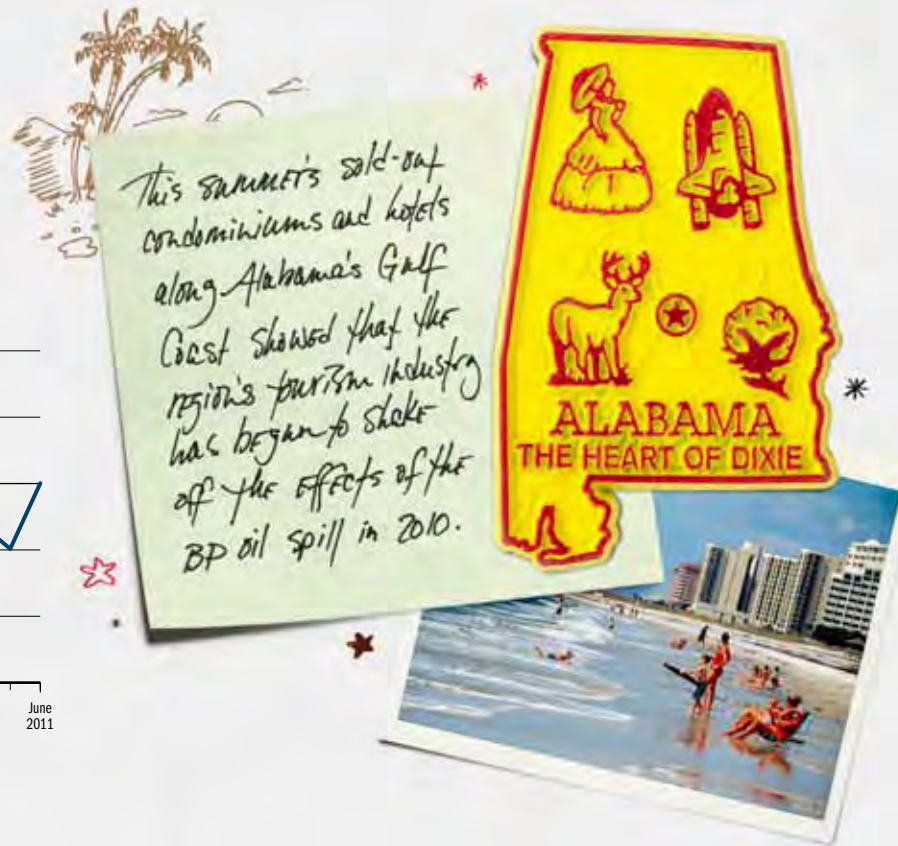 This summer's sold-out
condominiums and hotels
along Alabama's Gulf
Coast showed that the
region's tourism industry
has begun to shake
off the effects of the
BP oil spill in 2010.
ALABAMA
THE HEART OF DIXIE
June
2011